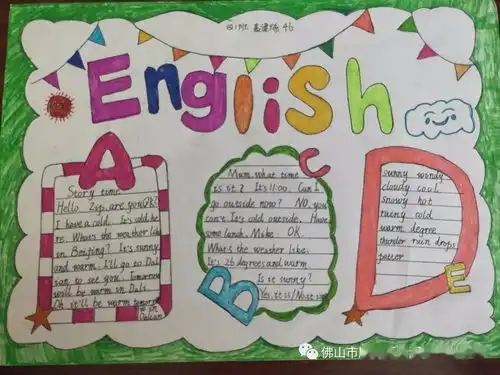 English
A
Story time
Hello Zip, are you OK?
I have a cold. It's cold he
re. What's the weather like
in Beijing? It's sunny
and warm. I'll go to Dal
ian to see you. Tomorrow
will be warm in Dali
Ok it'll be warm tomorrow
in
Dalian
B
Mum, what time
is it? It's 11:00. Can I
go outside now? NO, you
can't. It's cold outside. Have
some lunch. Mike OK.
What's the weather like.
It's 26 degrees and warm.
Is it sunny?
Yes, it is/No it
C
D
sunny windy
cloudy cool
snowy hot
rainy cold
warm degree
rain drops
E
佛山市